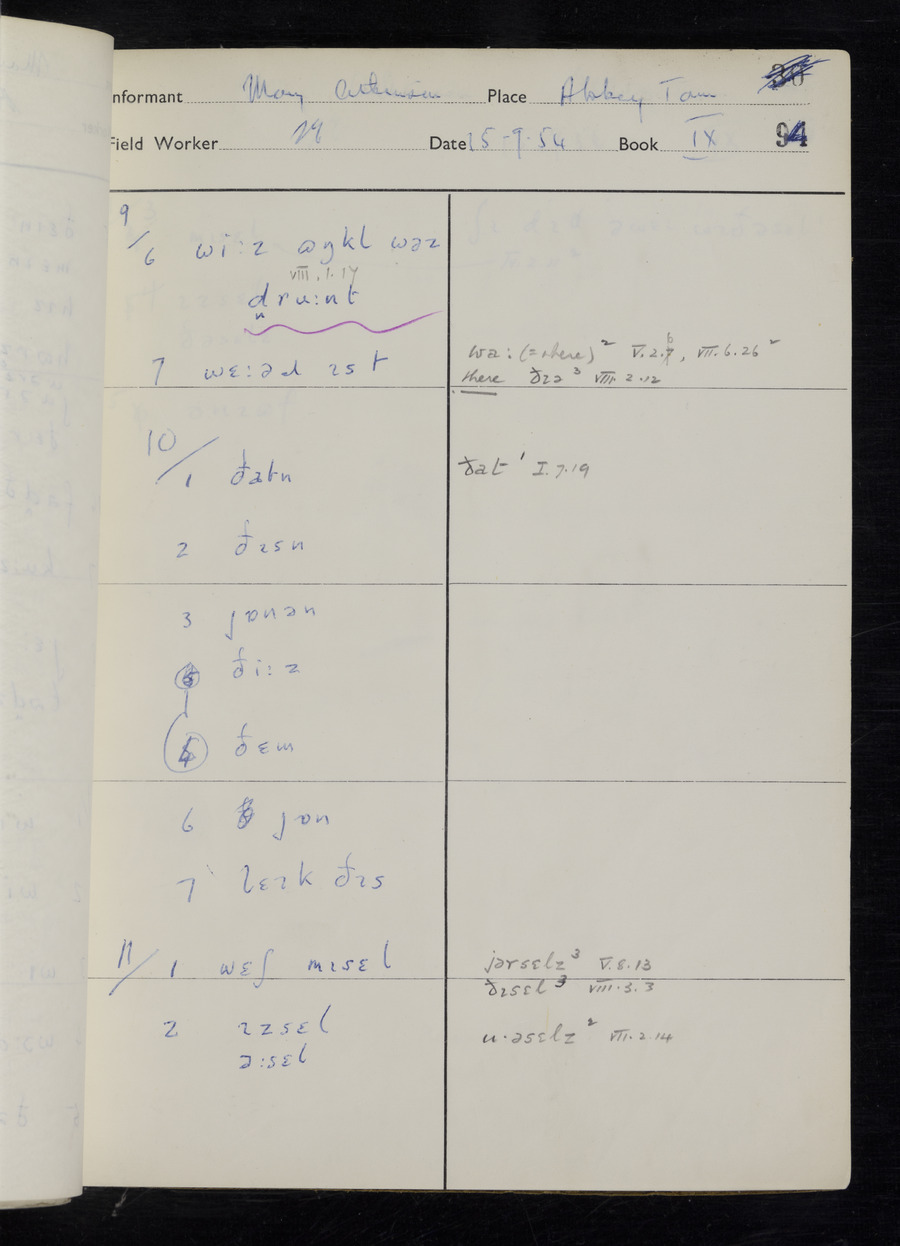 Informant Mary Atkinson Place Abbey Town
Field Worker Date 15-9-54 Book IX 94
9/6 wiːz ɒŋkl wəz
VIII.1.14
druːnt
7 wɛːəd ɪst
waː (=where)² V.2.6, VII.6.26²
there ðɪə³ VIII.2.12
10/1 ðatn
ðat¹ I.7.19
2 ðɪsn
3 jɒnən
4 ðiːz
5 ðɛm
6 jɒn
7 lɛɪk ðɪs
11/1 wɛʃ mɪsɛl
jərsɛlz³ V.8.13
ðɪsɛl³ VIII.3.3
2 ɪzsɛl
əːsɛl
uˑəsɛlz² VII.2.14